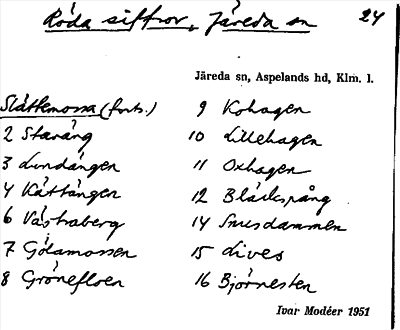 Röda siffror, Järeda sn 24
Järeda sn, Aspelands hd, Klm. l.
Slåttemossa (forts.)
2 Staräng
3 Lundängen
4 Kättängen
6 Västraberg
7 Gölamossen
8 Grönefloen
9 Kohagen
10 Lillehagen
11 Oxhagen
12 Bläckspång
14 Smesdammen
15 Lives
16 Björnesten
Ivar Modéer 1951